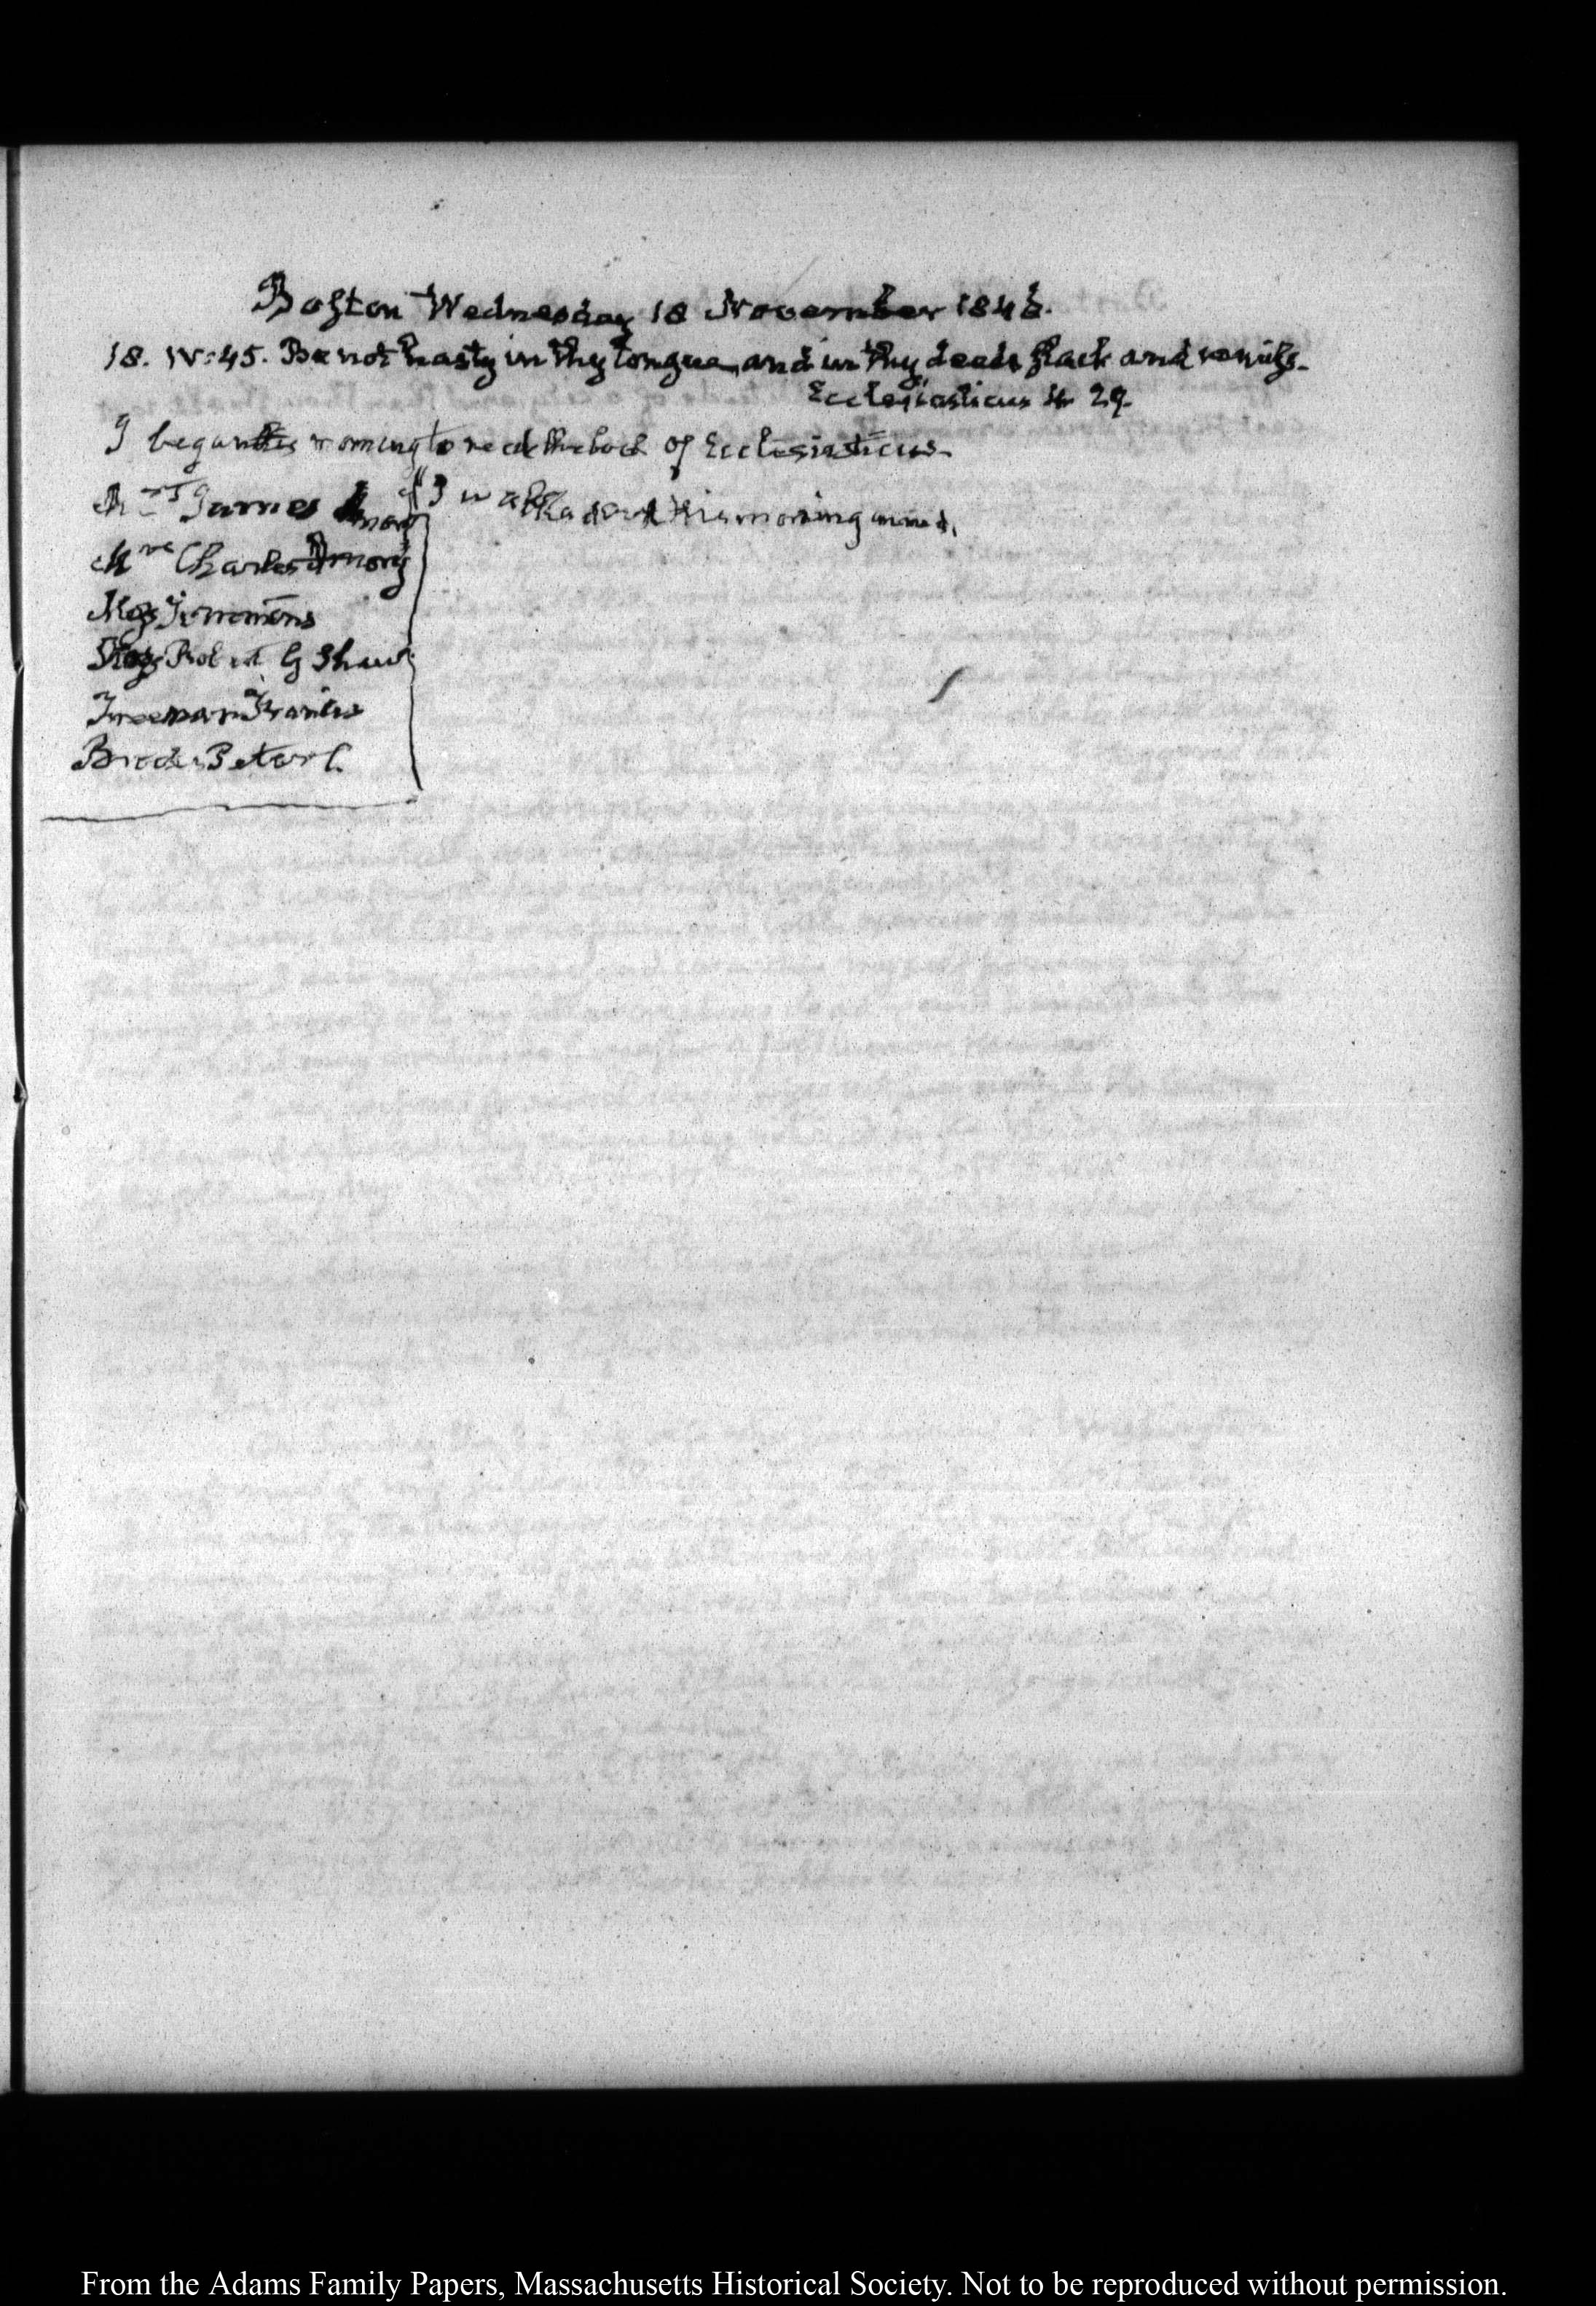 Boston Wednesday 18 November 1846.
18. IV:45. Be not hasty in thy tongue, and in thy deeds slack and remiss.
Ecclesiasticus 4. 29.
I began this morning to read the book of Ecclesiasticus.
Mrs James Amory
I walked out this morning and
Mrs Charles Amory
Timmins
Robert G Shaw
Freeman
Brooks Peter C.
From the Adams Family Papers, Massachusetts Historical Society. Not to be reproduced without permission.